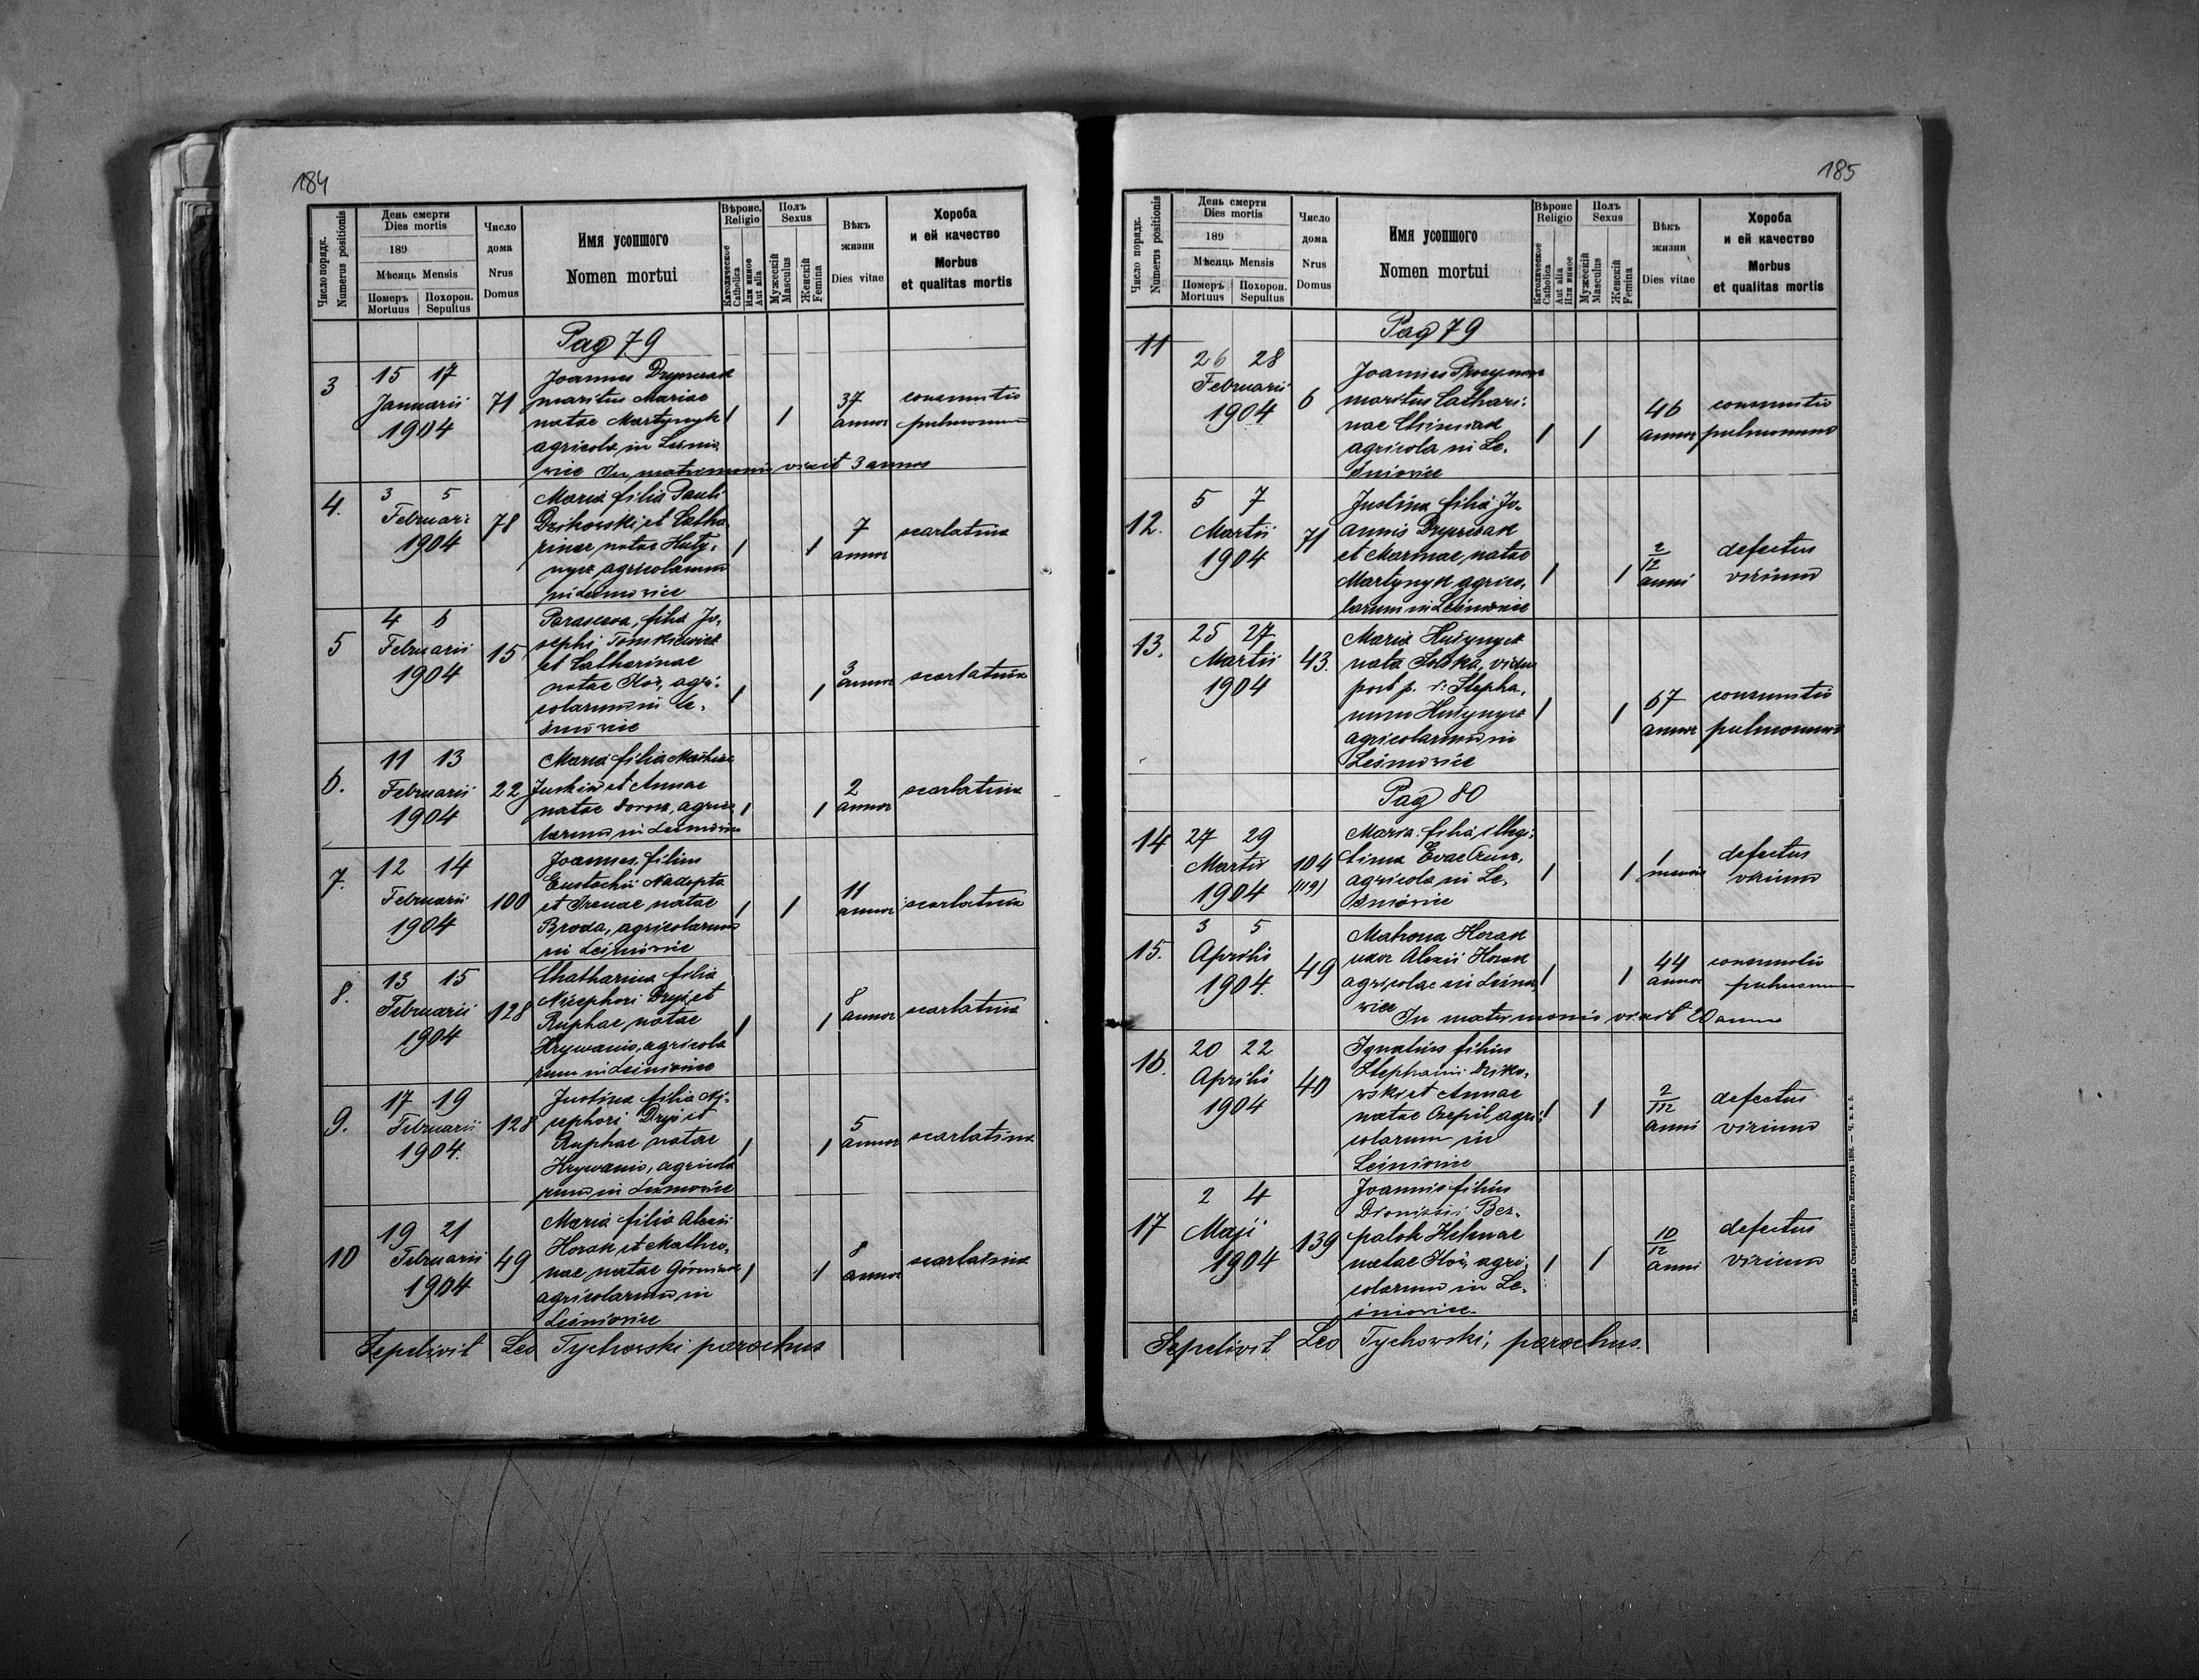 184
Число порядк.
Numerus positionis
День смерти
Dies mortis
189
Мѣсяць Mensis
Померъ
Mortuus
Похорон.
Sepultus
Число
дома
Nrus
Domus
Имя усопшого
Nomen mortui
Вѣроис.
Religio
Католическое
Catholica
Или инное
Aut alia
Полъ
Sexus
Мужескій
Masculus
Женскій
Femina
Вѣкъ
жизни
Dies vitae
Хороба
и ей качество
Morbus
et qualitas mortis
Pag 79
3
15 17
Januarii
1904
71
Joannes
maritus Mariae
natae Martynyk
agricola in Leśnio,
wice In matrimonio vixit 3 annos
1 1
37
annor
consumtio
pulmonum
4.
3 5
Februari
1904
78
Maria filia Pauli
Dzikowski et Catha
rinae natae Huty,
nycz, agricolarum
in Leśniowice
1 1
7
annor
scarlatina
5
4 6
Februarii
1904
15
Parasceva, filia Jo,
sephi Tomkiewicz
et Catharinae
natae Koś, agri,
colarum in Le,
śniowice
1 1
3
annor
scarlatina
6.
11 13
Februarii
1904
22
Maria filia
et Annae
natae agrico
larum in Leśniowice
1 1
2
annor
scarlatina
7.
12 14
Februarii
1904
100
Joannes filius
Eustachii Nadopta
et Irenae natae
Broda, agricolarum
in Leśniowice
1 1
11
annor
scarlatina
8.
13 15
Februarii
1904
128
Chatharina filia
Nicephori Dryś et
Ruphae, natae
Hrywanio, agricola
rum in Leśniowice
1 1
8
annor
scarlatina
9.
17 19
Februarii
1904.
128
Justina filia Ni,
cephori Dryś et
Ruphae natae
Hrywanio, agricola
rum in Leśniowice
1 1
5
annor
scarlatina
10
19 21
Februarii
1904
49
Maria filia Alexii
Horak et Mathro,
nae natae Górniak
agricolarum in
Leśniowice
1 1
8
annor
scarlatina
Sepelivit Leo Tychowski parochus
185
Число порядк.
Numerus positionis
День смерти
Dies mortis
189
Мѣсяць Mensis
Померъ
Mortuus
Похорон.
Sepultus
Число
дома
Nrus
Domus
Имя усопшого
Nomen mortui
Вѣроис
Religio
Католическое
Catholica
Aut alia
Или инное
Полъ
Sexus
Мужескій
Masculus
Женскій
Femina
Вѣкъ
жизни
Dies vitae
Хороба
и ей качество
Morbus
et qualitas mortis
Pag 79
11
26 28
Februarii
1904
6
Joannes
maritus Cathari,
nae
agricola in Le,
śniowice
1 1
46
annor
consumtio
pulmonum
12.
5 7
Martii
1904
71
Justina filia Jo,
annis
et Mariae, natae
Martynyk agrico,
larum in Leśniowice
1 1
2/12
anni
defectus
virium
13.
25 27
Martii
1904
43.
Maria Hutynycz
nata vidua
post p. d. Stepha,
num Hutynycz
agricolarum in
Leśniowice
1 1
67
annor
consumtio
pulmonum
Pag 80
14
27 29
Martii
1904
104
(119)
Maria filia illegi,
tima Evae
agricola in Le,
śniowice
1 1
1
mensis
defectus
virium
15.
3 5
Aprilis
1904
49
Matrona Horak
uxor Alexii Horak
agricolae in Leśnio,
wice In matrimonio vixit 20 annos
1 1
44
annor
consumtio
pulmonum
16.
20 22
Aprilis
1904
40
Ignatius filius
Stephani Dziko,
wski et Annae
natae Czepil, agri,
colarum in
Leśniowice
1 1
2/12
anni
defectus
virium
17
2 4
Maji
1904
139
Joannis filius
Dionissii Bez,
palok Helenae
natae Koś, agri,
colarum in Le,
śniowice
1 1
10/12
anni
defectus
virium
Sepelivit Leo Tychowski, parochus.
Изъ типографіи Ставропигійского Института 1896. — Ч. к. к. 5.